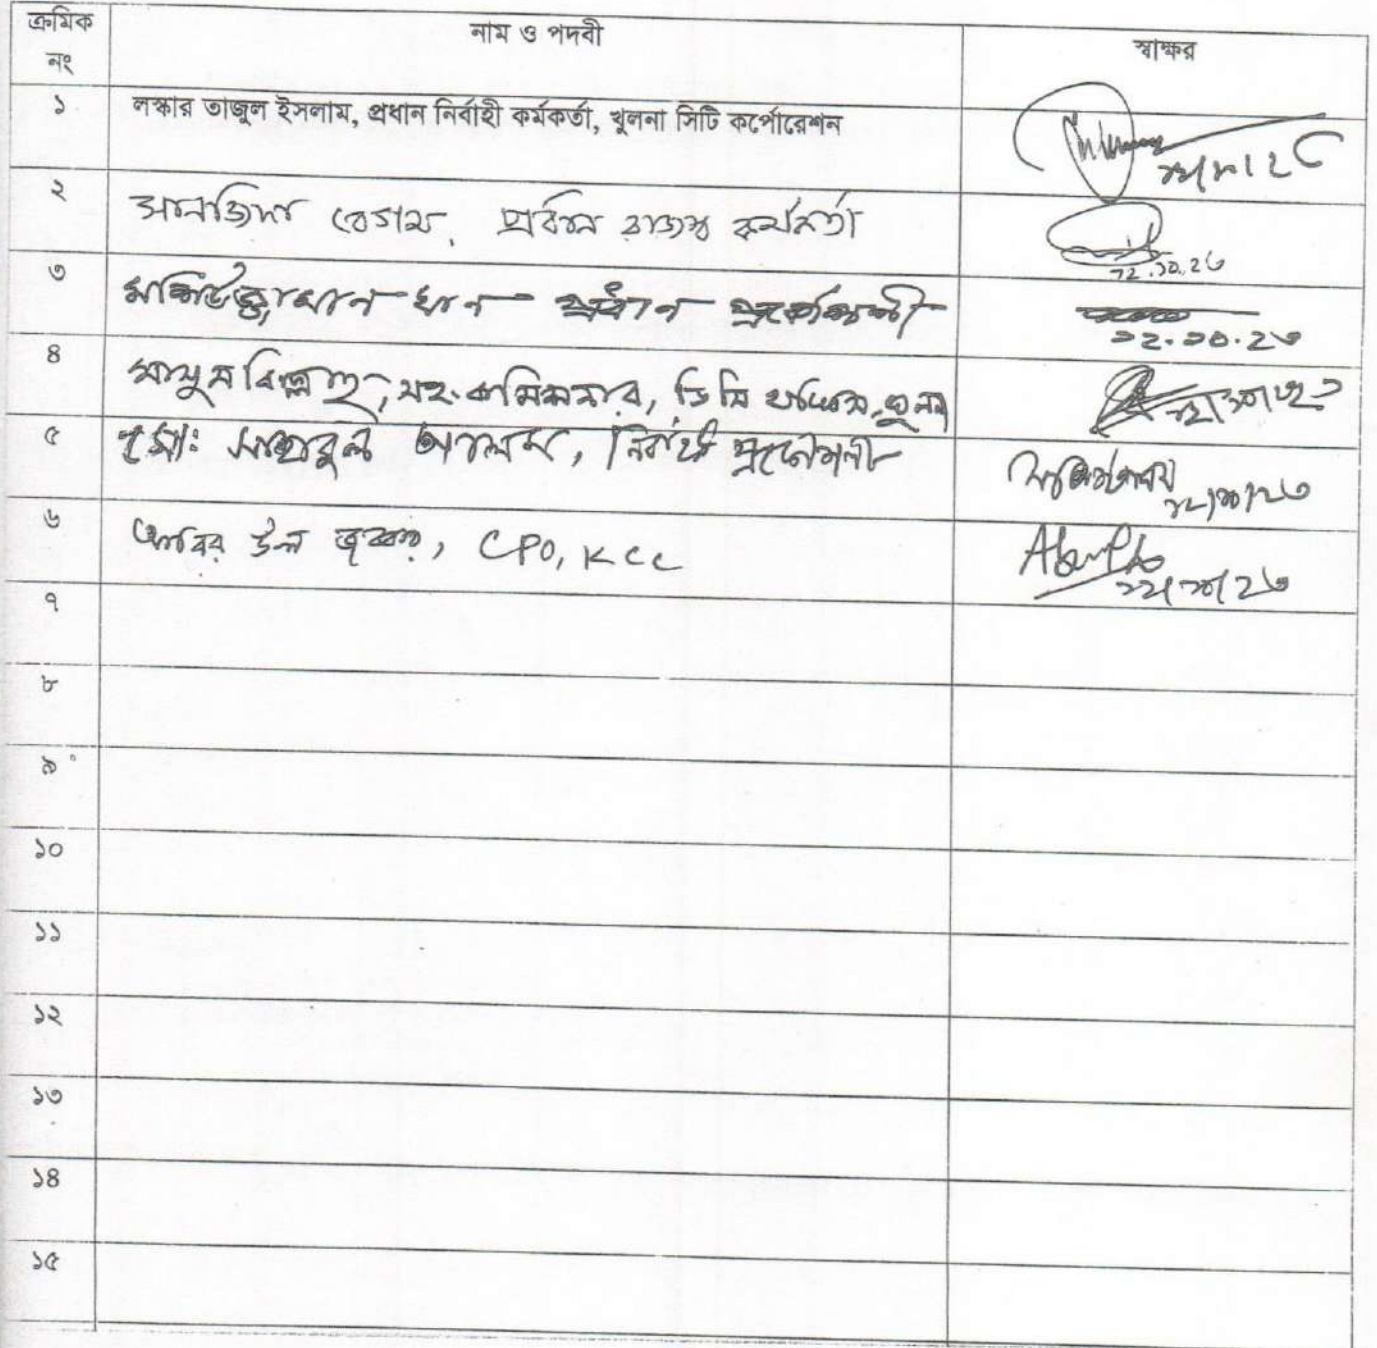 ক্রমিক নং নাম ও পদবী স্বাক্ষর
১ লস্কার তাজুল ইসলাম, প্রধান নির্বাহী কর্মকর্তা, খুলনা সিটি কর্পোরেশন
২ সানজিদা বেগম, প্রধান রাজস্ব কর্মকর্তা ১২.১০.২৩
৩ মশিউজ্জামান খান প্রধান প্রকৌশলী ১২.১০.২৩
৪ মামুন বিল্লাহ, সহ. কমিশনার, ডিসি অফিস, খুলনা
৫ মোঃ আলম, নির্বাহী প্রকৌশলী ১২/১০/২৩
৬ আবির উল জব্বার, CPO, KCC ১২/১০/২৩
৭
৮
৯
১০
১১
১২
১৩
১৪
১৫